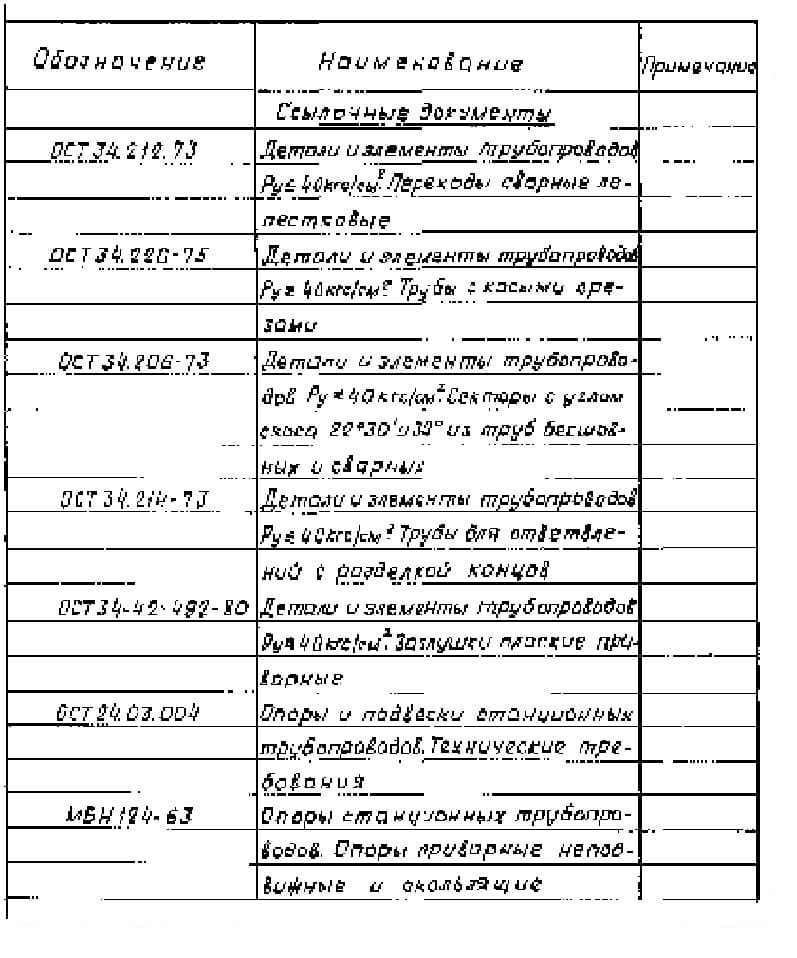 Обозначение Наименование Примечание
Ссылочные документы
ОСТ 34.212.73 Детали и элементы трубопроводов
Ру≤40кгс/см². Переходы сварные ле-
пестковые
ОСТ 34.226-75 Детали и элементы трубопроводов
Ру≤40кгс/см² Трубы с косыми сре-
зами
ОСТ 34.206-73 Детали и элементы трубопрово-
дов Ру≤40кгс/см². Секторы с углом
скоса 22°30' и 30° из труб бесшов-
ных и сварных
ОСТ 34.214-73 Детали и элементы трубопроводов
Ру≤40кгс/см² Трубы для ответвле-
ний с разделкой концов
ОСТ 34-42-492-80 Детали и элементы трубопроводов
Ру≤40кгс/см². Заглушки плоские при-
варные
ОСТ 24.03.004 Опоры и подвески станционных
трубопроводов. Технические тре-
бования
МВН 124-63 Опоры станционных трубопро-
водов. Опоры приварные непод-
вижные и скользящие